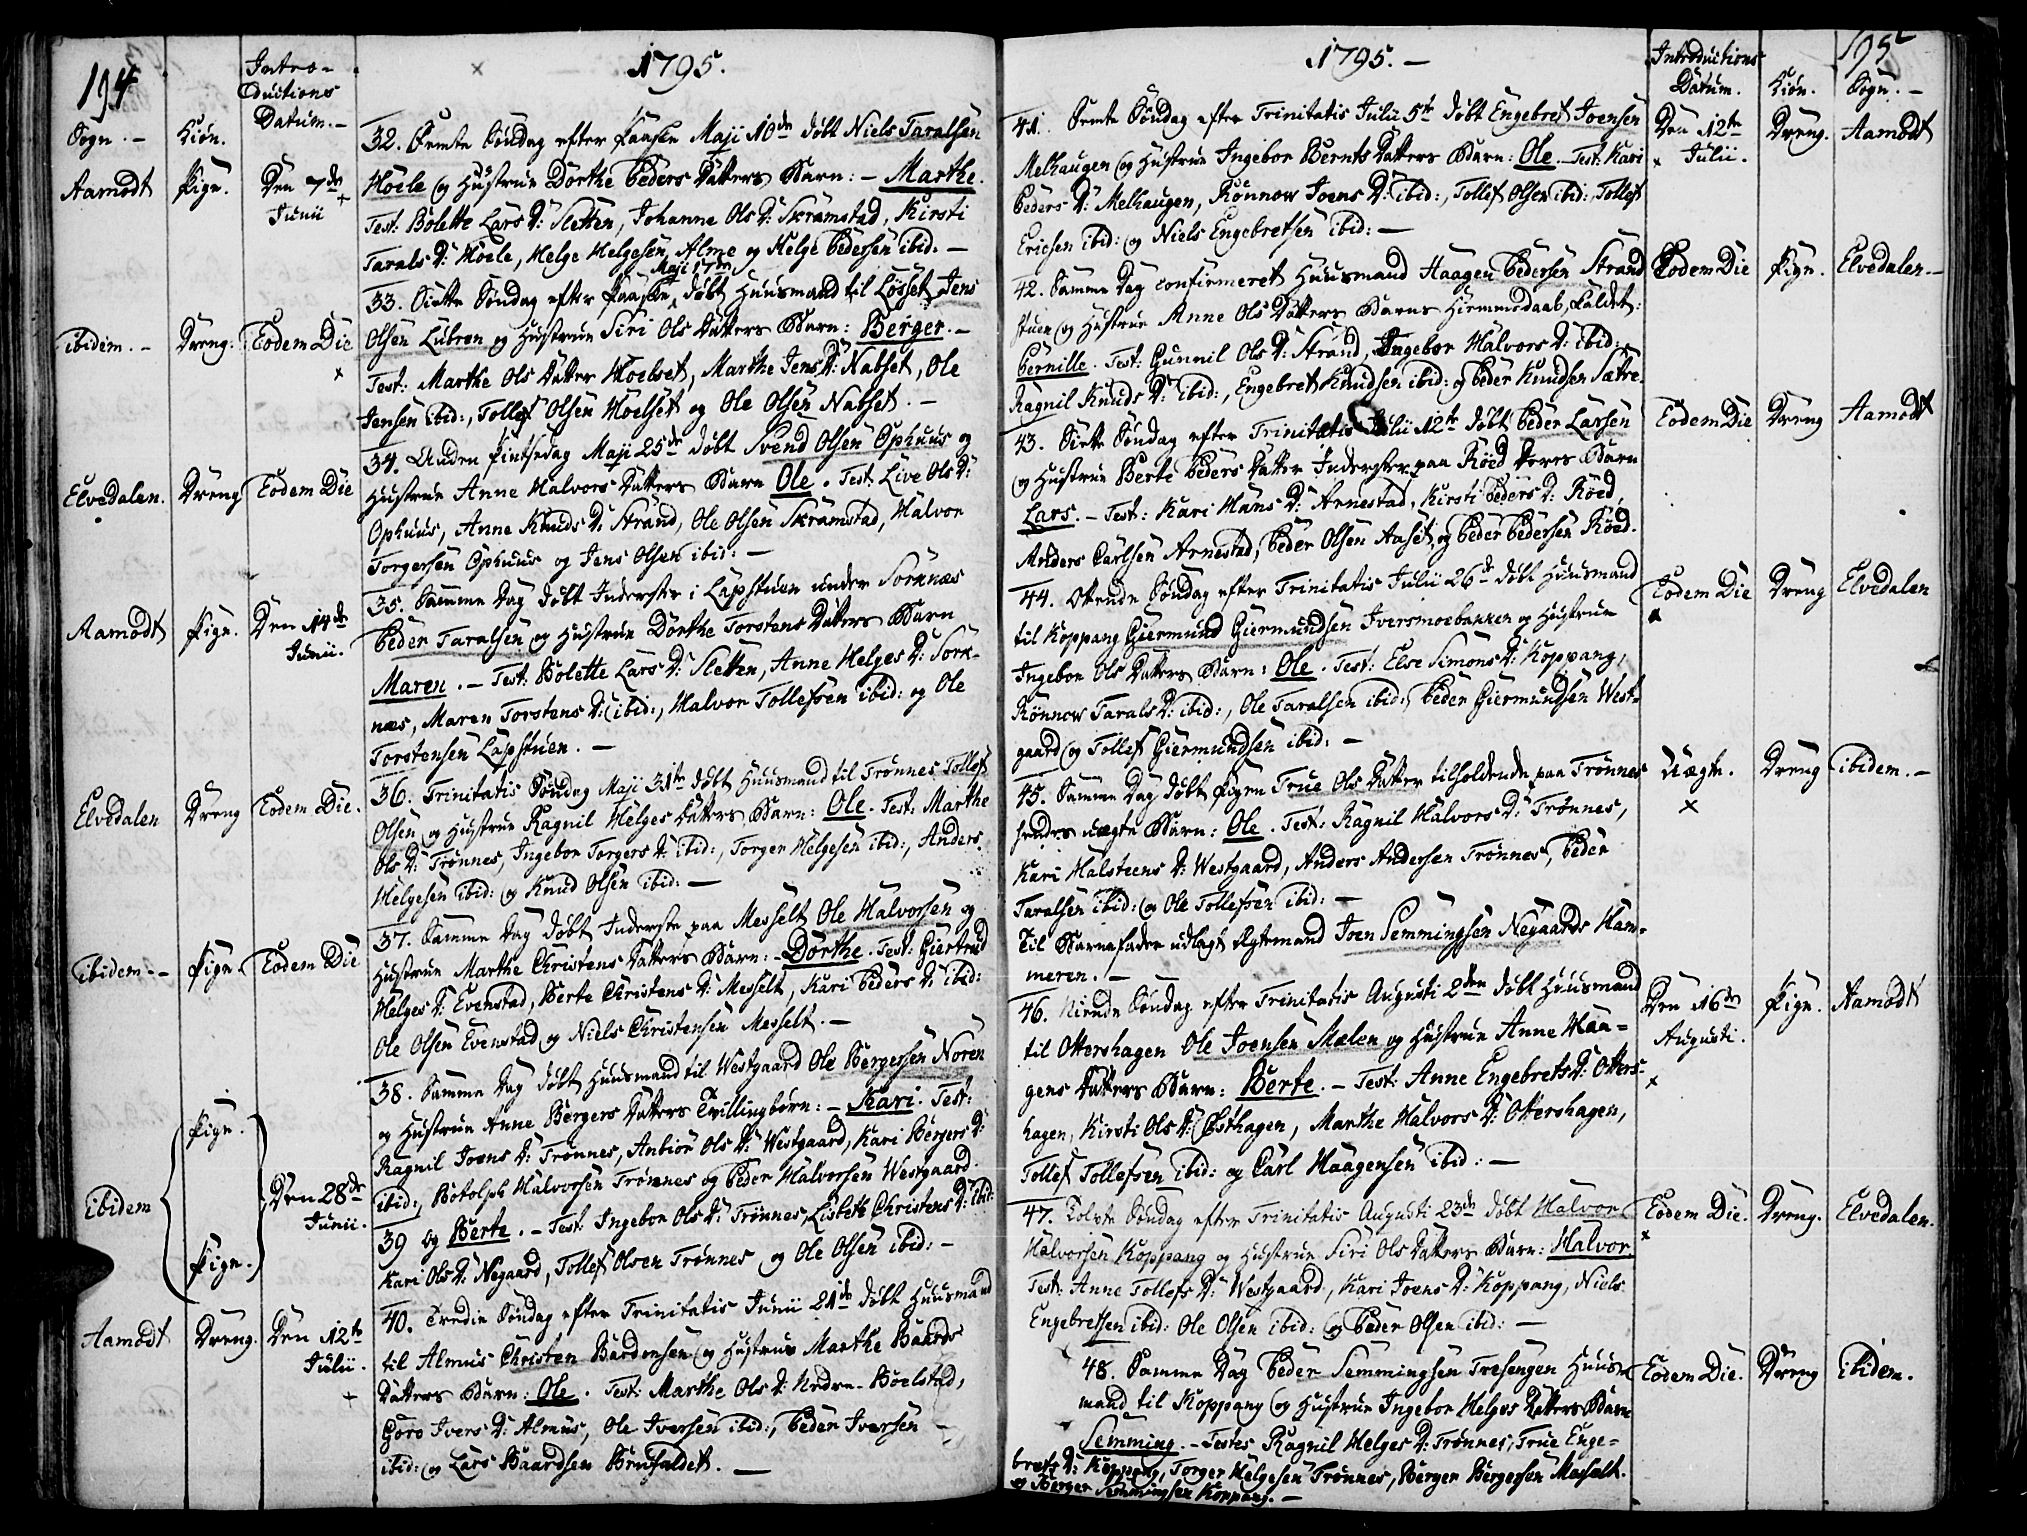 194
Intro-
ductions
Datum.-
Sogn.- Kiön.
1795.
32. Femte Söndag efter Paaske Maji 10de döbt Niels Taralsen
Aamodt Pige. Den 7de Junii
Hoele og Hustrue Dorthe Peders Datters Barn:- Marthe.
Test: Bolette Lars D: Sletten, Johanne Ols D: Skramstad, Kirsti
Tarals D: Hoele, Helge Helgesen Alme og Helge Pedersen ibid:-
33. Siette Söndag efter Paaske, Maji 17de döbt Huusmand til Lösset Jens
ibidem.- Dreng. Eodem Die
Olsen Lubron og Hustrue Siri Ols Datters Barn: Berger.-
Test: Marthe Ols Datter Hoelset, Marthe Jens D: Nabset, Ole
Jensen ibid:, Tollef Olsen Hoelset og Ole Olsen Nabset.-
34. Anden Pintsedag Maji 25de döbt Svend Olsen Ophuus og
Elvedalen. Dreng Eodem Die
Hustrue Anne Halvors Datters Barn Ole. Test: Live Ols D:
Ophuus, Anne Knuds D: Strand, Ole Olsen Skramstad, Halvor
Torgersen Ophuus og Jens Olsen ibid:-
35. Samme Dag döbt Inderster i Lapstuen under Sorknæs
Aamodt Pige. Den 14de Junii.
Peder Taralsen og Hustrue Dorthe Torstens Datters Barn
Maren.- Test: Bolette Lars D: Sletten, Anne Helges D: Sork-
næs, Maren Torstens D: ibid:, Halvor Tollefsen ibid: og Ole
Torstensen Lapstuen.-
36. Trinitatis Söndag Maji 31te döbt Huusmand til Trönnes Tollef
Elvedalen Dreng Eodem Die.
Olsen og Hustrue Ragnil Helges Datters Barn: Ole. Test: Marthe
Ols D: Trönnes, Ingebor Torgers D: ibid:, Torger Helgesen ibid:, Anders
Helgesen ibid: og Knud Olsen ibid:-
37. Samme Dag döbt Inderste paa Messelt Ole Halvorsen og
ibidem.- Pige. Eodem Die
Hustrue Marthe Christens Datters Barn:- Dorthe. Test: Giertrud
Helges D: Evenstad, Berte Christens D: Messelt, Kari Peders D: ibid:
Ole Olsen Evenstad og Niels Christensen Messelt.-
38. Samme Dag döbt Huusmand til Westgaard Ole Bergersen Noren
Pige.
og Hustrue Anne Bergers Datters Tvillingbörn:- Kari. Test:
Ragnil Joens D: Trönnes, Anbior Ols D: Westgaard, Kari Bergers D:
ibidem Den 28de Junii.
ibid:, Botolph Halvorsen Trönnes og Peder Halvorsen Westgaard.
39 og Berte.- Test: Ingebor Ols D: Trönnes, Lisbeth Christens D: ibid:
Pige.
Kari Ols D: Negaard, Tollef Olsen Trönnes og Ole Olsen ibid:-
40. Tredie Söndag efter Trinitatis Junii 21de döbt Huusmand
Aamodt Dreng. Den 12te Julii.
til Almus Christen Bardonsen og Hustrue Marthe Baards
Datters Barn: Ole. Test: Marthe Ols D: Nedre-Böelstad,
Goro Ivers D: Almus, Ole Iversen ibid:, Peder Iversen
ibid: og Lars Baardsen Brufaldet.-
195
1795.-
Introductions Datum. Kiön. Sogn.-
41. Femte Söndag efter Trinitatis Julii 5te döbt Engebret Joensen
Den 12te Julii. Dreng. Aamodt
Melhaugen og Hustrue Ingebor Bernts Datters Barn: Ole. Test: Kari
Peders D: Melhaugen, Rönnow Joens D: ibid:, Tollef Olsen ibid:, Tollef
Ericsen ibid: og Niels Engebretsen ibid:-
42. Samme Dag confirmeret Huusmand Haagen Pedersen Strand
Eodem Die Pige. Elvedalen.-
stuen og Hustrue Anne Ols Datters Barns Hiemmedaab, kaldet:
Pernille. Test: Gunnil Ols D: Strand, Ingebor Halvors D: ibid:,
Ragnil Knuds D: ibid:, Engebret Knudsen ibid: og Peder Knudsen Sætre.
43. Siette Söndag efter Trinitatis Julii 12te döbt Peder Larsen
Eodem Die Dreng Aamodt
og Hustrue Berte Peders Datter Inderster paa Röed deres Barn
Lars.- Test: Kari Hans D: Arnestad, Kirsti Peders D: Röed,
Anders Carlsen Arnestad, Peder Olsen Aaset og Peder Pedersen Röed.
44. Ottende Söndag efter Trinitatis Julii 26de döbt Huusmand
Eodem Die Dreng Elvedalen
til Koppang Giermund Giermundsen Iversmoebakken og Hustrue
Ingebor Ols Datters Barn: Ole. Test: Else Simons D: Koppang,
Rönnow Tarals D: ibid:, Ole Taralsen ibid:, Peder Giermundsen West-
gaard og Tollef Giermundsen ibid:-
45. Samme Dag döbt Pigen True Ols Datter tilholdende paa Trönnes
Uægte. Dreng ibidem.-
hendes uægte Barn: Ole. Test: Ragnil Halvors D: Trönnes,
Kari Halsteens D: Westgaard, Anders Andersen Trönnes, Peder
Taralsen ibid: og Ole Tollefsen ibid:-
Til Barnefader udlagt Egtemand Joen Semmingsen Negaards Ham-
meren.-
46. Niende Söndag efter Trinitatis Augusti 2den döbt Huusmand
Den 16de Augusti. Pige. Aamodt
til Ottershagen Ole Joensen Mælen og Hustrue Anne Haa-
gens Datters Barn: Berte.- Test: Anne Engebrets D: Otters-
hagen, Kirsti Ols D: Östhagen, Marthe Halvors D: Ottershagen,
Tollef Tollefsen ibid: og Carl Haagensen ibid:-
47. Tolvte Söndag efter Trinitatis Augusti 23de döbt Halvor
Eodem Die. Dreng. Elvedalen.
Halvorsen Koppang og Hustrue Siri Ols Datters Barn: Halvor
Test: Anne Tollefs D: Westgaard, Kari Joens D: Koppang, Niels
Engebretsen ibid: Ole Olsen ibid: og Peder Olsen ibid:-
48. Samme Dag Peder Semmingsen Tresengen Huus-
Eodem Die. Dreng ibidem.
mand til Koppang og Hustrue Ingebor Helges Datters Barn
Semming.- Testes Ragnil Helges D: Trönnes, True Enge-
brets D: Koppang, Torger Helgesen Trönnes, Berger Bergersen Messelt.
og Berger Semmingsen Koppang.-